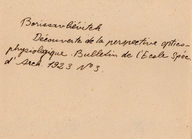 Borissavliévitch
Découverte de la perspective optico-
physiologique. Bulletin de l'Ecole Spéc.
d'Arch. 1923 N° 3.